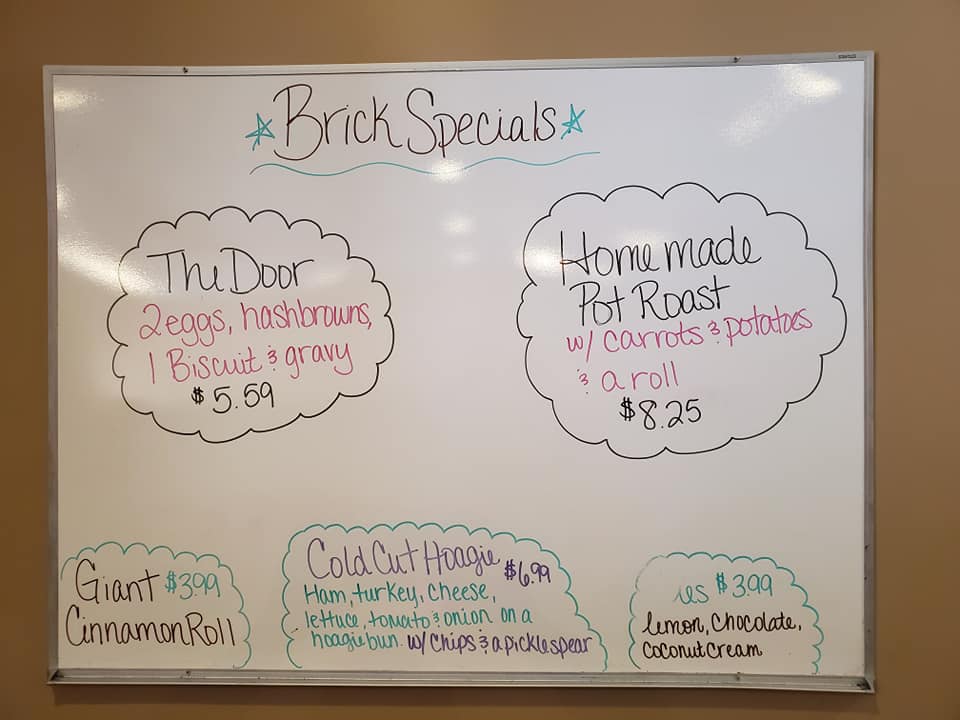 Brick Specials
The Door
2 eggs, hashbrowns,
1 Biscuit & gravy
$5.59
Homemade
Pot Roast
w/ carrots & potatoes
& a roll
$8.25
Giant $3.99
Cinnamon Roll
Cold Cut Hoagie $6.99
Ham, turkey, cheese,
lettuce, tomato & onion on a
hoagie bun. w/ Chips & a pickle spear
ies $3.99
lemon, chocolate,
coconut cream